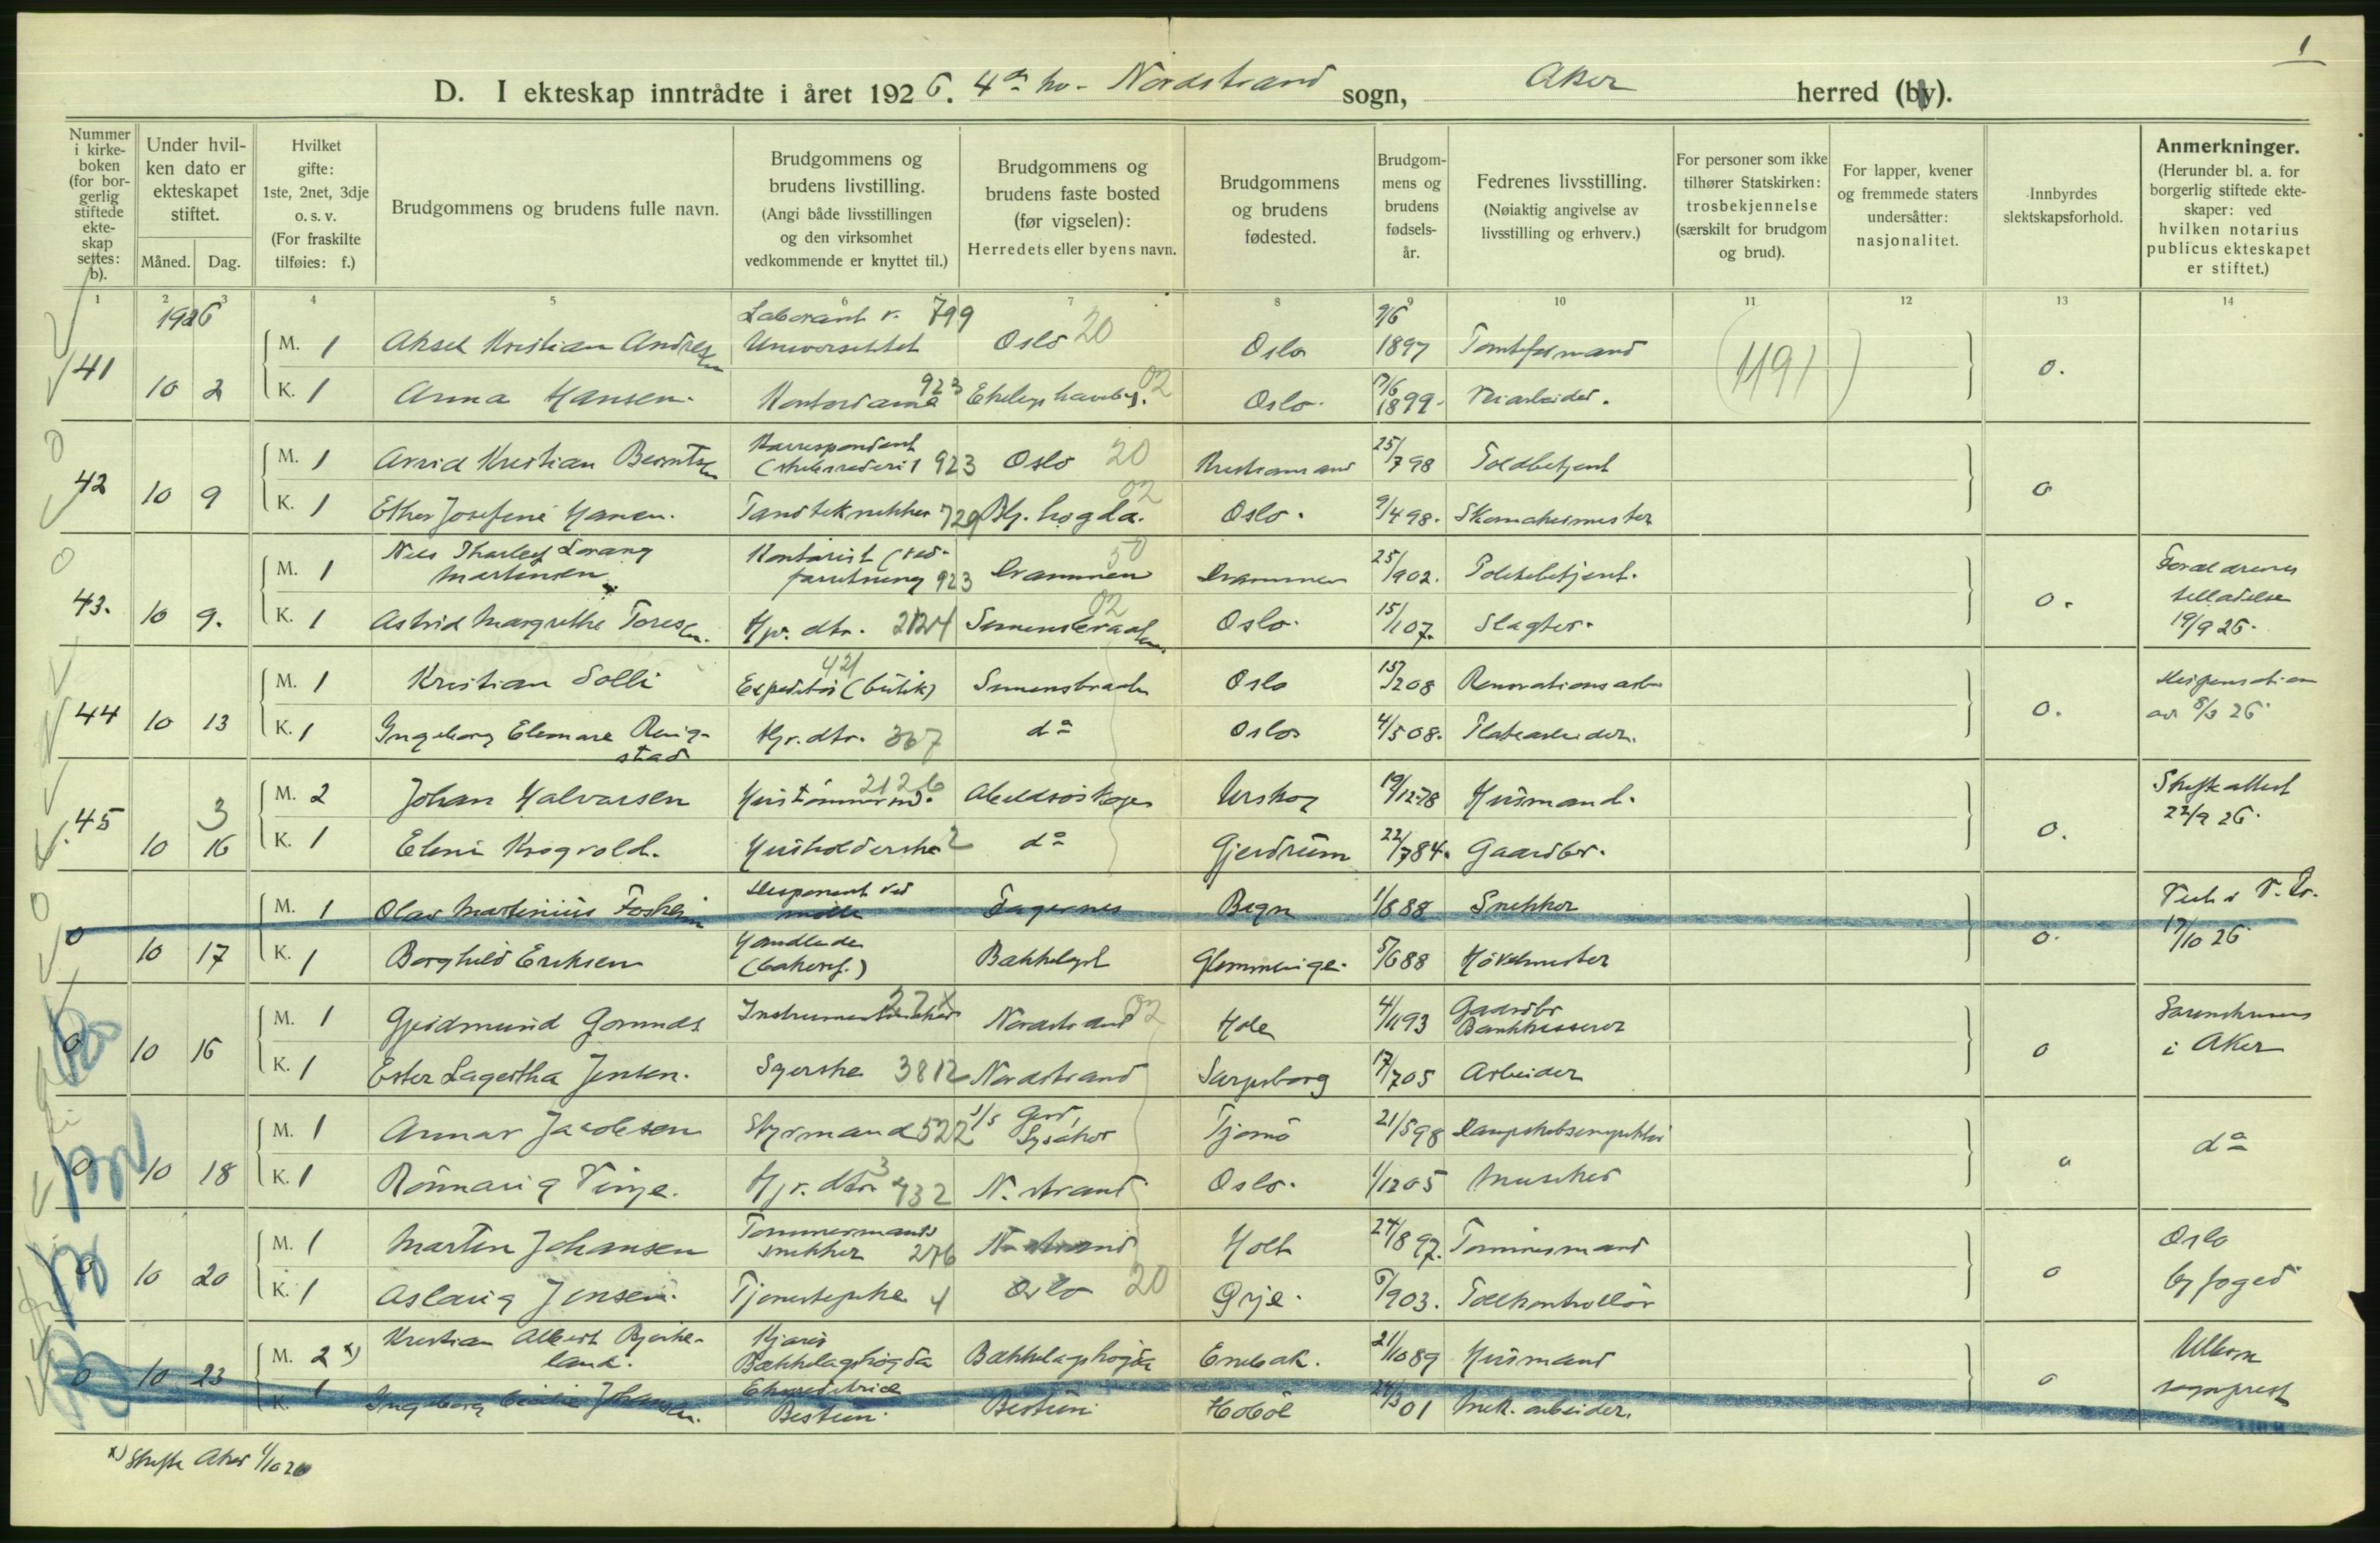 1
D. I ekteskap inntrådte i året 1926. 4de kv. Nordstrand sogn, Aker herred (by).
Nummer i kirkeboken (for borgerlig stiftede ekteskap settes: b).
Under hvilken dato er ekteskapet stiftet.
Måned. Dag.
Hvilket gifte: 1ste, 2net, 3dje o. s. v. (For fraskilte tilføies: f.)
Brudgommens og brudens fulle navn.
Brudgommens og brudens livstilling. (Angi både livsstillingen og den virksomhet vedkommende er knyttet til.)
Brudgommens og brudens faste bosted (før vigselen): Herredets eller byens navn.
Brudgommens og brudens fødested.
Brudgommens og brudens fødselsår.
Fedrenes livsstilling. (Nøiaktig angivelse av livsstilling og erhverv.)
For personer som ikke tilhører Statskirken: trosbekjennelse (særskilt for brudgom og brud).
For lapper, kvener og fremmede staters undersåtter: nasjonalitet.
Innbyrdes slektskapsforhold.
Anmerkninger. (Herunder bl. a. for borgerlig stiftede ekteskaper: ved hvilken notarius publicus ekteskapet er stiftet.)
1 2 3 4 5 6 7 8 9 10 11 12 13 14
1926
41 10 2
M. 1 Aksel Kristian Andresen Laborant v. Universitetet 799 Oslo 20 Oslo 9/6 1897 Tomteformand (1191)
K. 1 Anna Hansen. Kontordame 923 02 Oslo. 1899. 0.
42 10 9
M. 1 Arvid Kristian Berntsen Korrespondent 923 Oslo 20 Kristiansand 25/7 98 Toldbetjent
K. 1 Esther Josefine Hansen. Tandtekniker 729 Bk. høgda. 02 Oslo. 9/4 98. Skomakermester 0
43. 10 9.
M. 1 Nils Tharlef Lorang Martinsen Kontorist (ved forretning 923 Drammen 50 Drammen 25/9 02. Politibetjent.
K. 1 Astrid Margrethe Toresen. Hjv. dtr. 2124 Simensbraaten 02 Oslo. 15/1 07. Slagter. 0. Forældrenes tilladelse 19/9 26.
44 10 13
M. 1 Kristian Solli Expeditør (butik) 421 Simensbraaten Oslo 15/2 08 Renovationsarb.
K. 1 Ingeborg Elenore Ringstad Hjv. dtr. 367 do Oslo 4/5 08. Platearbeider. 0. Dispensation av 8/3 26.
45 10 16 3
M. 2 Johan Halvorsen Hustømmerm. 2126 Abildsøskogen Urskog 19/12 78 Husmand.
K. 1 Eleni Krogvold. Husholderske 2 do Gjerdrum 22/7 84. Gaardbr. 0. Skifteattest 22/9 26.
0 10 17
M. 1 Olav Martinius Fosheim Disponent ved mølle Fagernes Bagn 1/8 88 Snekker
K. 1 Borghild Eriksen Handlende (bakeri.) Bækkelaget Glemminge. 5/6 88 Høvelmester 0. 17/10 26
0 10 16
M. 1 Gudmund Gomnes Instrumentmaker 27 Nordstrand 02 Hole 4/11 93 Gaardbr Bankkasserer
K. 1 Ester Lagertha Jensen. Syerske 3812 Nordstrand Sarpsborg 17/7 05 Arbeider 0 Sorenskriveren i Aker
0 10 18
M. 1 Annar Jacobsen Styrmand 522 Lysaker Tjømø 21/5 98
K. 1 Rønnaug Vinje. Hjv. dtr. 432 N. strand Oslo. 1/12 05 Musiker 0 do
0 10 20
M. 1 Marten Johansen Tømmermand snekker 276 N. strand Holt 24/8 97. Tømmermand
K. 1 Aslaug Jensen. Tjenestepike 4 Oslo 20 Øije. 5/9 03. Tollkontrollør 0 Oslo byfoged
0 10 23
M. 2 x) Kristian Albert Bjerkeland. Bækkelagshøgda Bækkelagshøgda Enebak. 21/10 89 Husmand
K. 1 Ingeborg Johansen. Ekspeditrice Bestum. Bestum Hobøl 24/3 01 Mek. arbeider. 0 Ullern sogneprest
x) Skifte Aker 1/10 20